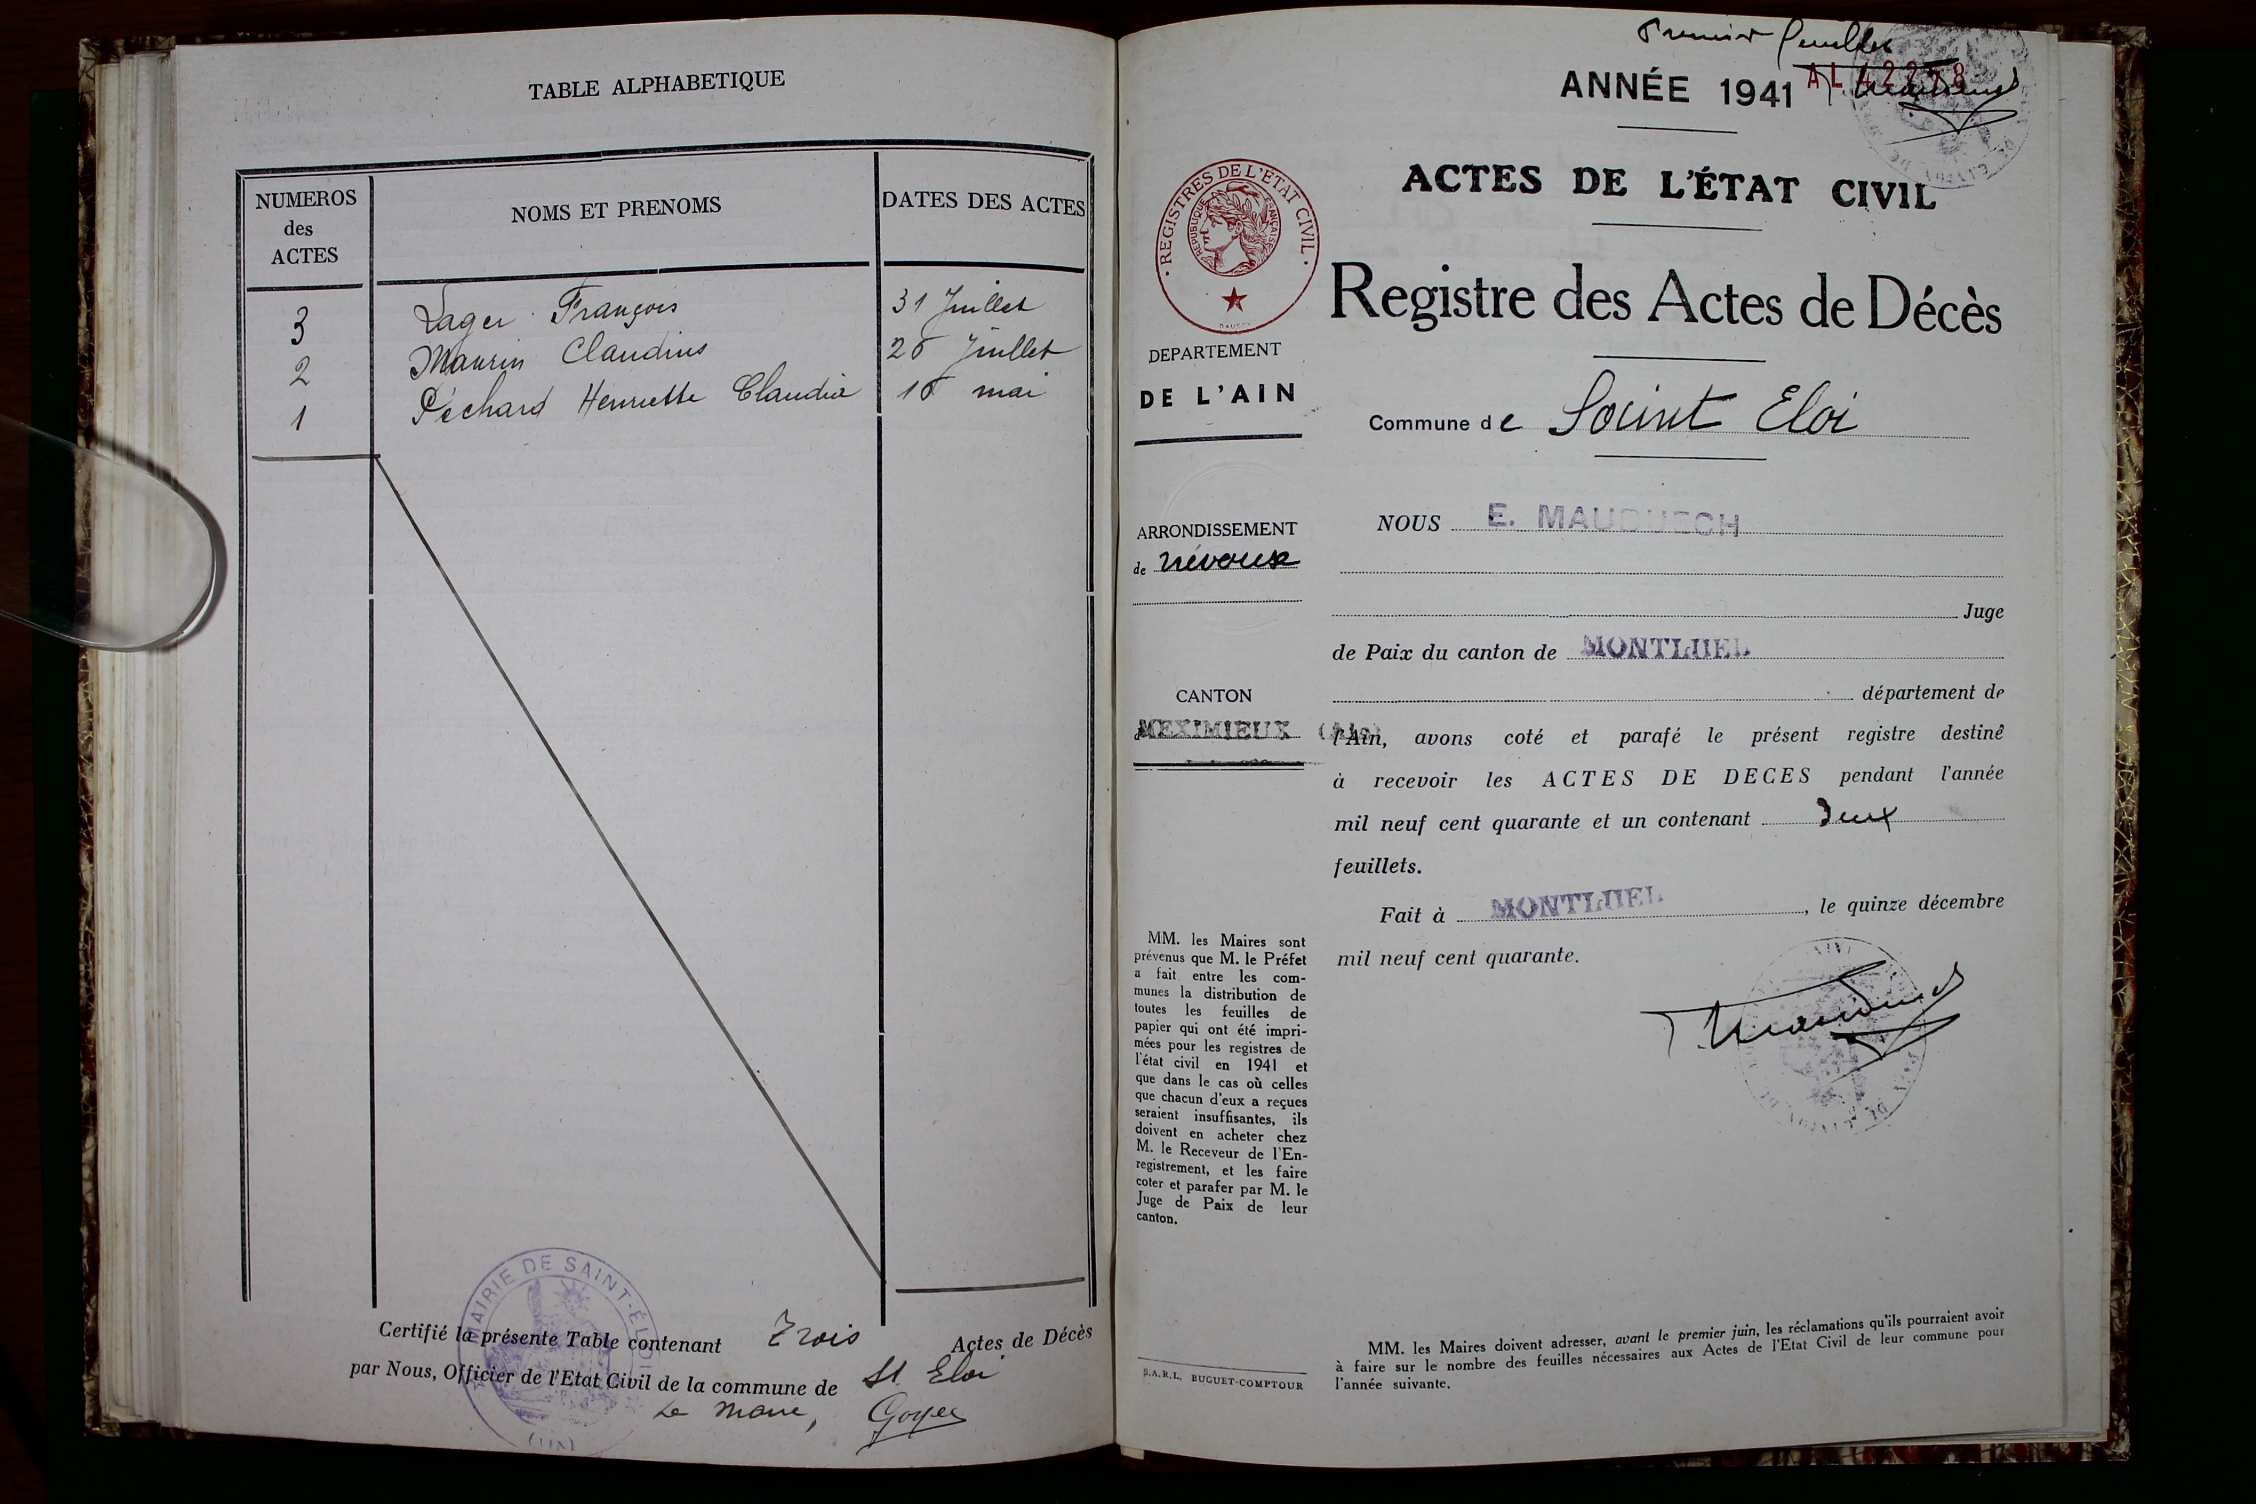 TABLE ALPHABETIQUE
NUMEROS
des
ACTES
NOMS ET PRENOMS
DATES DES ACTES
3 Lager François 31 Juillet
2 Maurin Claudius 26 Juillet
1 Péchard Henriette Claudia 16 mai
Certifié la présente Table contenant Trois Actes de Décès
par Nous, Officier de l'Etat Civil de la commune de St Eloi
Le Maire, Goyer
MAIRIE DE SAINT-ÉLOI
(AIN)
Premier feuillet
ANNÉE 1941
ACTES DE L'ÉTAT CIVIL
REGISTRES DE L'ÉTAT CIVIL
REPUBLIQUE FRANÇAISE
Registre des Actes de Décès
DEPARTEMENT
DE L'AIN
Commune de Saint Eloi
ARRONDISSEMENT
de Trévoux
CANTON
MEXIMIEUX (Ain)
MM. les Maires sont
prévenus que M. le Préfet
a fait entre les com-
munes la distribution de
toutes les feuilles de
papier qui ont été impri-
mées pour les registres de
l'état civil en 1941 et
que dans le cas où celles
que chacun d'eux a reçues
seraient insuffisantes, ils
doivent en acheter chez
M. le Receveur de l'En-
registrement, et les faire
coter et parafer par M. le
Juge de Paix de leur
canton.
S.A.R.L. BUGUET-COMPTOUR
NOUS E. MAUDUECH
Juge
de Paix du canton de MONTLUEL
département de
l'Ain, avons coté et parafé le présent registre destiné
à recevoir les ACTES DE DECES pendant l'année
mil neuf cent quarante et un contenant Deux
feuillets.
Fait à MONTLUEL, le quinze décembre
mil neuf cent quarante.
MM. les Maires doivent adresser, avant le premier juin, les réclamations qu'ils pourraient avoir
à faire sur le nombre des feuilles nécessaires aux Actes de l'Etat Civil de leur commune pour
l'année suivante.